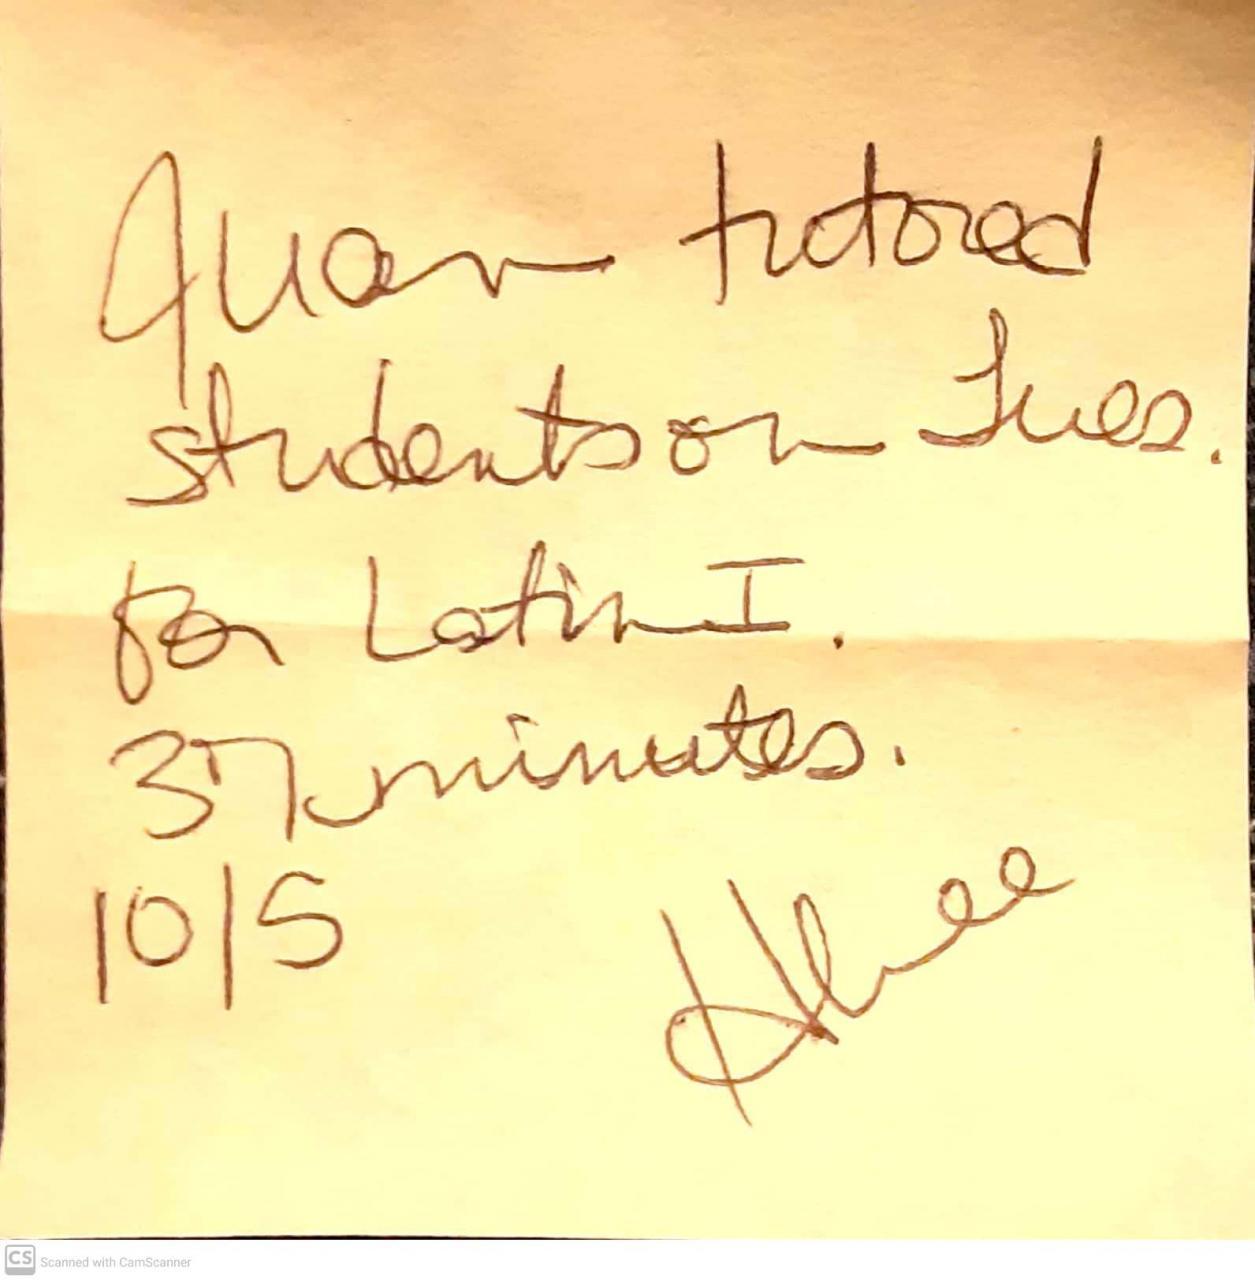 Juan tutored
students on Tues.
for Latin I.
37 minutes.
10/5
CS Scanned with CamScanner